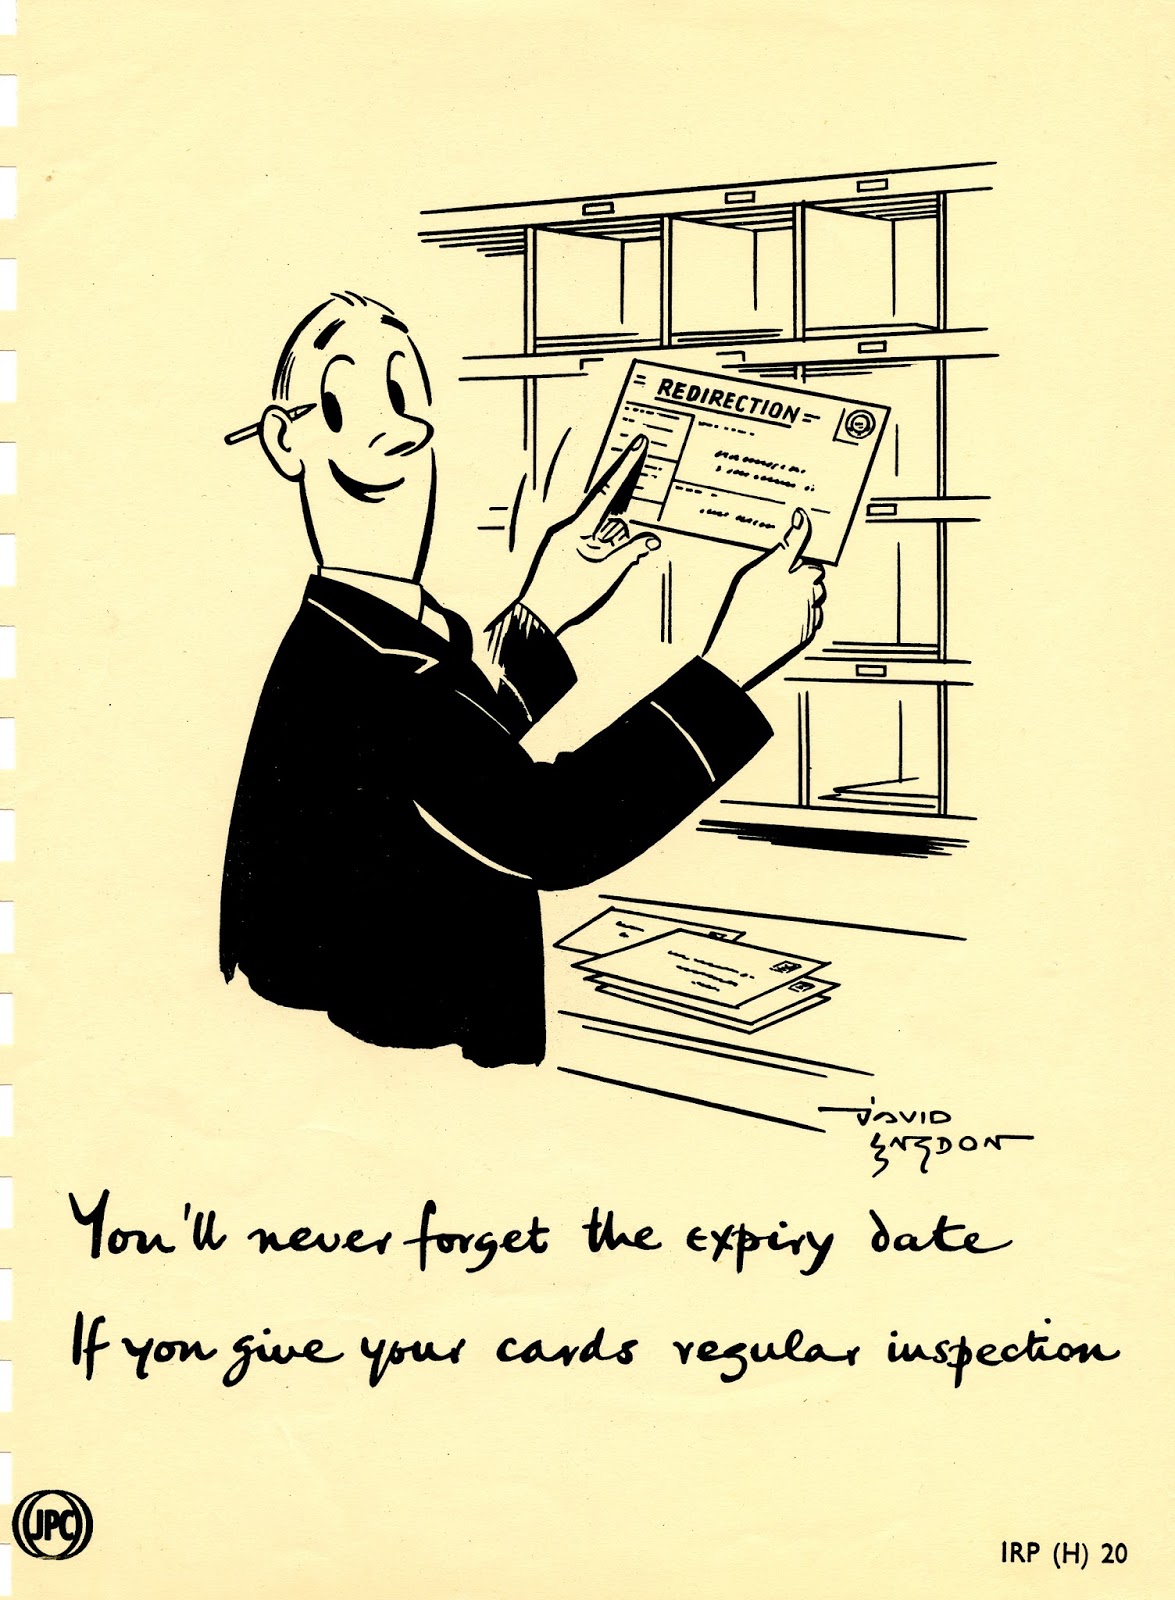 REDIRECTION
DAVID
LANGDON
You'll never forget the expiry date
If you give your cards regular inspection
JPC
IRP (H) 20